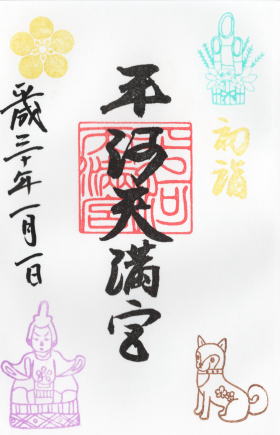 初詣
平河天満宮
平成三十年一月一日